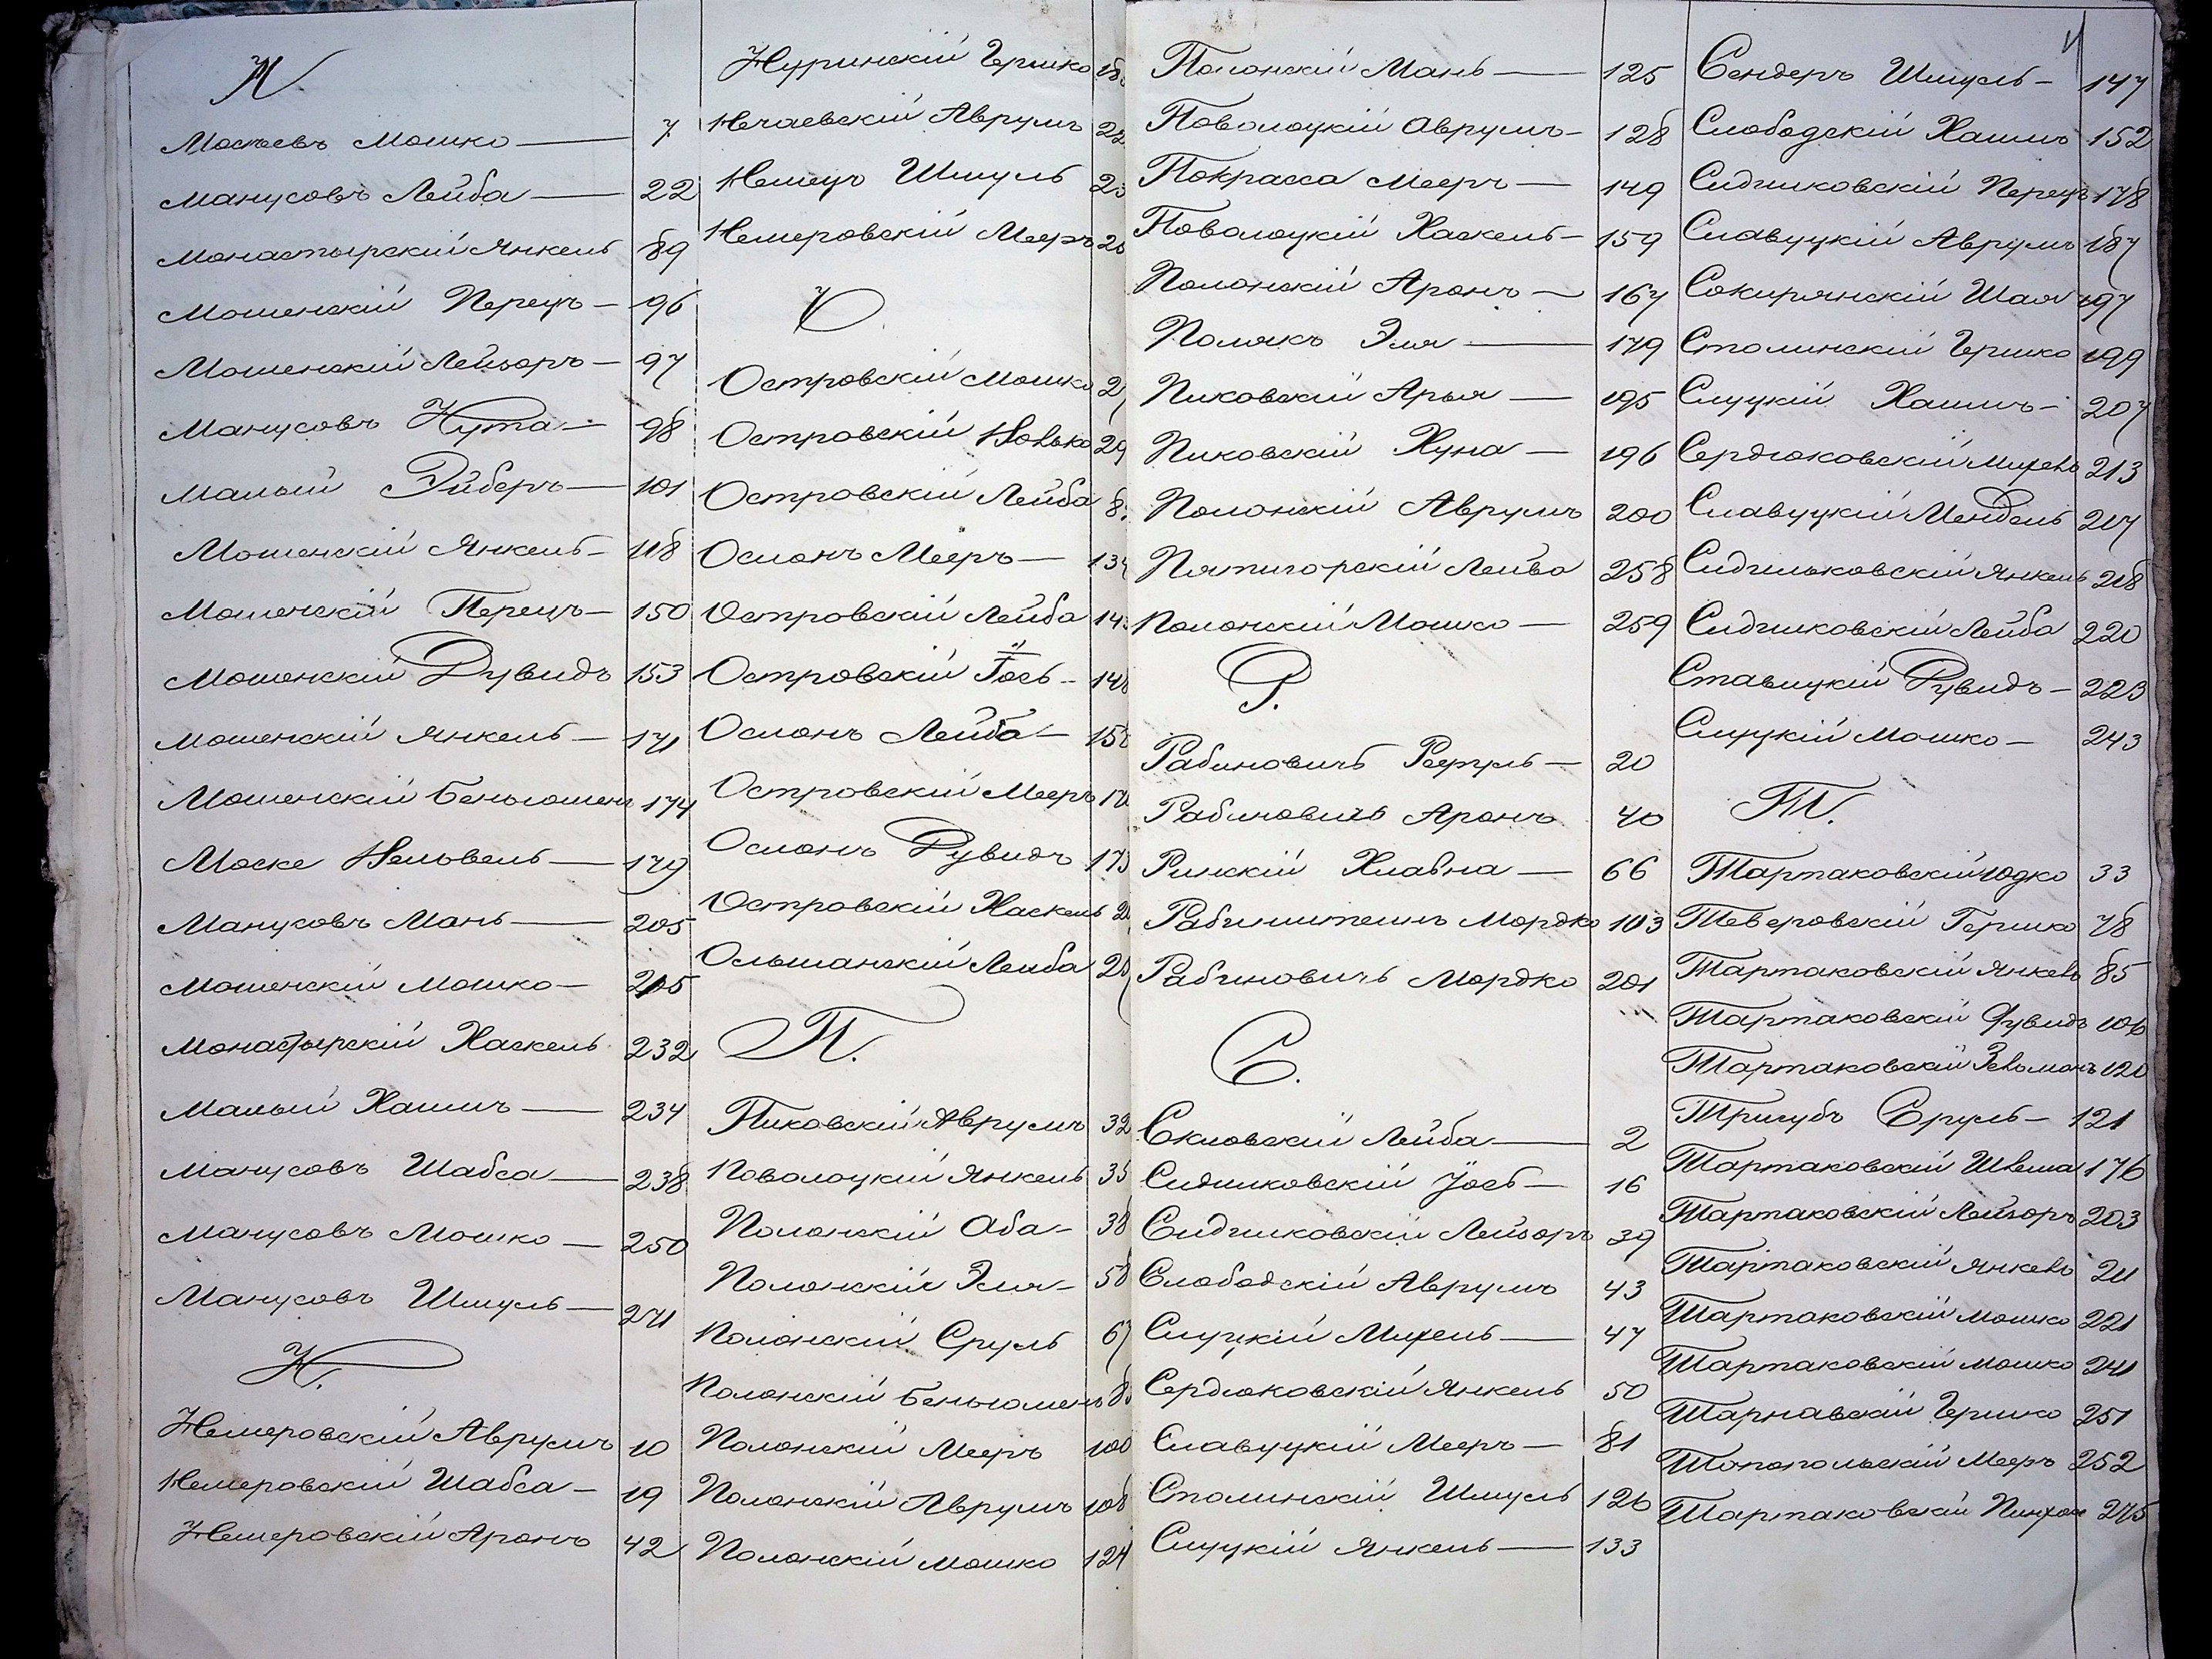 М.
Мосьевъ Мошко — 7
Манусовъ Лейба — 22
Монастырскій Янкель 89
Мошенскій Перецъ — 96
Мошенскій Лейзоръ — 97
Манусовъ Нута — 98
Малый Эйберъ — 101
Мошенскій Янкель — 118
Мошенскій Перецъ — 150
Мошенскій Дувидъ 153
Мошенскій Янкель — 171
Мошенскій Беньюменъ 174
Моске Нельвель — 179
Манусовъ Мань — 205
Мошенскій Мошко — 215
Монастырскій Хаскель 232
Малый Хаимъ — 234
Манусовъ Шабса — 238
Манусовъ Мошко — 250
Манусовъ Шмуль — 271
Н.
Немеровскій Аврумъ 10
Немеровскій Шабса — 19
Немеровскій Аронъ 42
Нуринскій Гершко
Нечаевскій Аврумъ
Немецъ Шмуль
Немеровскій Мееръ
О.
Островскій Мошко
Островскій
Островскій Лейба
Осмонъ Мееръ —
Островскій Лейба
Островскій Іось —
Осмонъ Лейба —
Островскій Мееръ
Осмонъ Дувидъ
Островскій Хаскель
Ольшанскій Лейба
П.
Пиковскій Аврумъ 32
Поволоцкій Янкель 35
Полонскій Аба — 38
Полонскій Эля — 58
Полонскій Сруль 67
Полонскій Беньюменъ
Полонскій Мееръ 100
Полонскій Аврумъ 108
Полонскій Мошко 124
Полонскій Мань — 125
Поволоцкій Аврумъ — 128
Покрасса Мееръ — 149
Поволоцкій Хаскель — 159
Полонскій Аронъ — 167
Полякъ Эля — 179
Пиковскій Арья — 195
Пиковскій Хуна — 196
Полонскій Аврумъ 200
Пятигорскій Лейба 258
Полонскій Мошко — 259
Р.
Рабиновичъ — 20
Рабиновичъ Аронъ 40
Ринскій Хлавна — 66
Рабинштейнъ Мордко 103
Рабиновичъ Мордко 201
С.
Скловскій Лейба — 2
Сидликовскій Іось — 16
Сидликовскій Лейзоръ 39
Слободскій Аврумъ 43
Слуцкій Михель — 47
Сердюковскій Янкель 50
Славуцкій Мееръ — 81
Столинскій Шмуль 126
Слуцкій Янкель — 133
Сендеръ Шмуль — 147
Слободскій Хаимъ 152
Сидликовскій Перецъ 178
Славуцкій Аврумъ 187
Сокирянскій Шая 197
Столинскій Гершко 199
Слуцкій Хаимъ — 207
Сердюковскій Михель 213
Славуцкій Мендель 217
Сидлиьковскій Янкель 218
Сидликовскій Лейба 220
Ставицкій Дувидъ — 223
Слуцкій Мошко — 243
Т.
Тартаковскій Юдко 33
Теверовскій Гершко 78
Тартаковскій Янкель 85
Тартаковскій Дувидъ 106
Тартаковскій Зельманъ 120
Тригубъ Сруль — 121
Тартаковскій Шлема 176
Тартаковскій Лейзоръ 203
Тартаковскій Янкель 211
Тартаковскій Мошко 221
Тартаковскій Мошко 241
Тарнавскій Гершко 251
Топопольскій Мееръ 252
Тартаковскій Пинхас 275